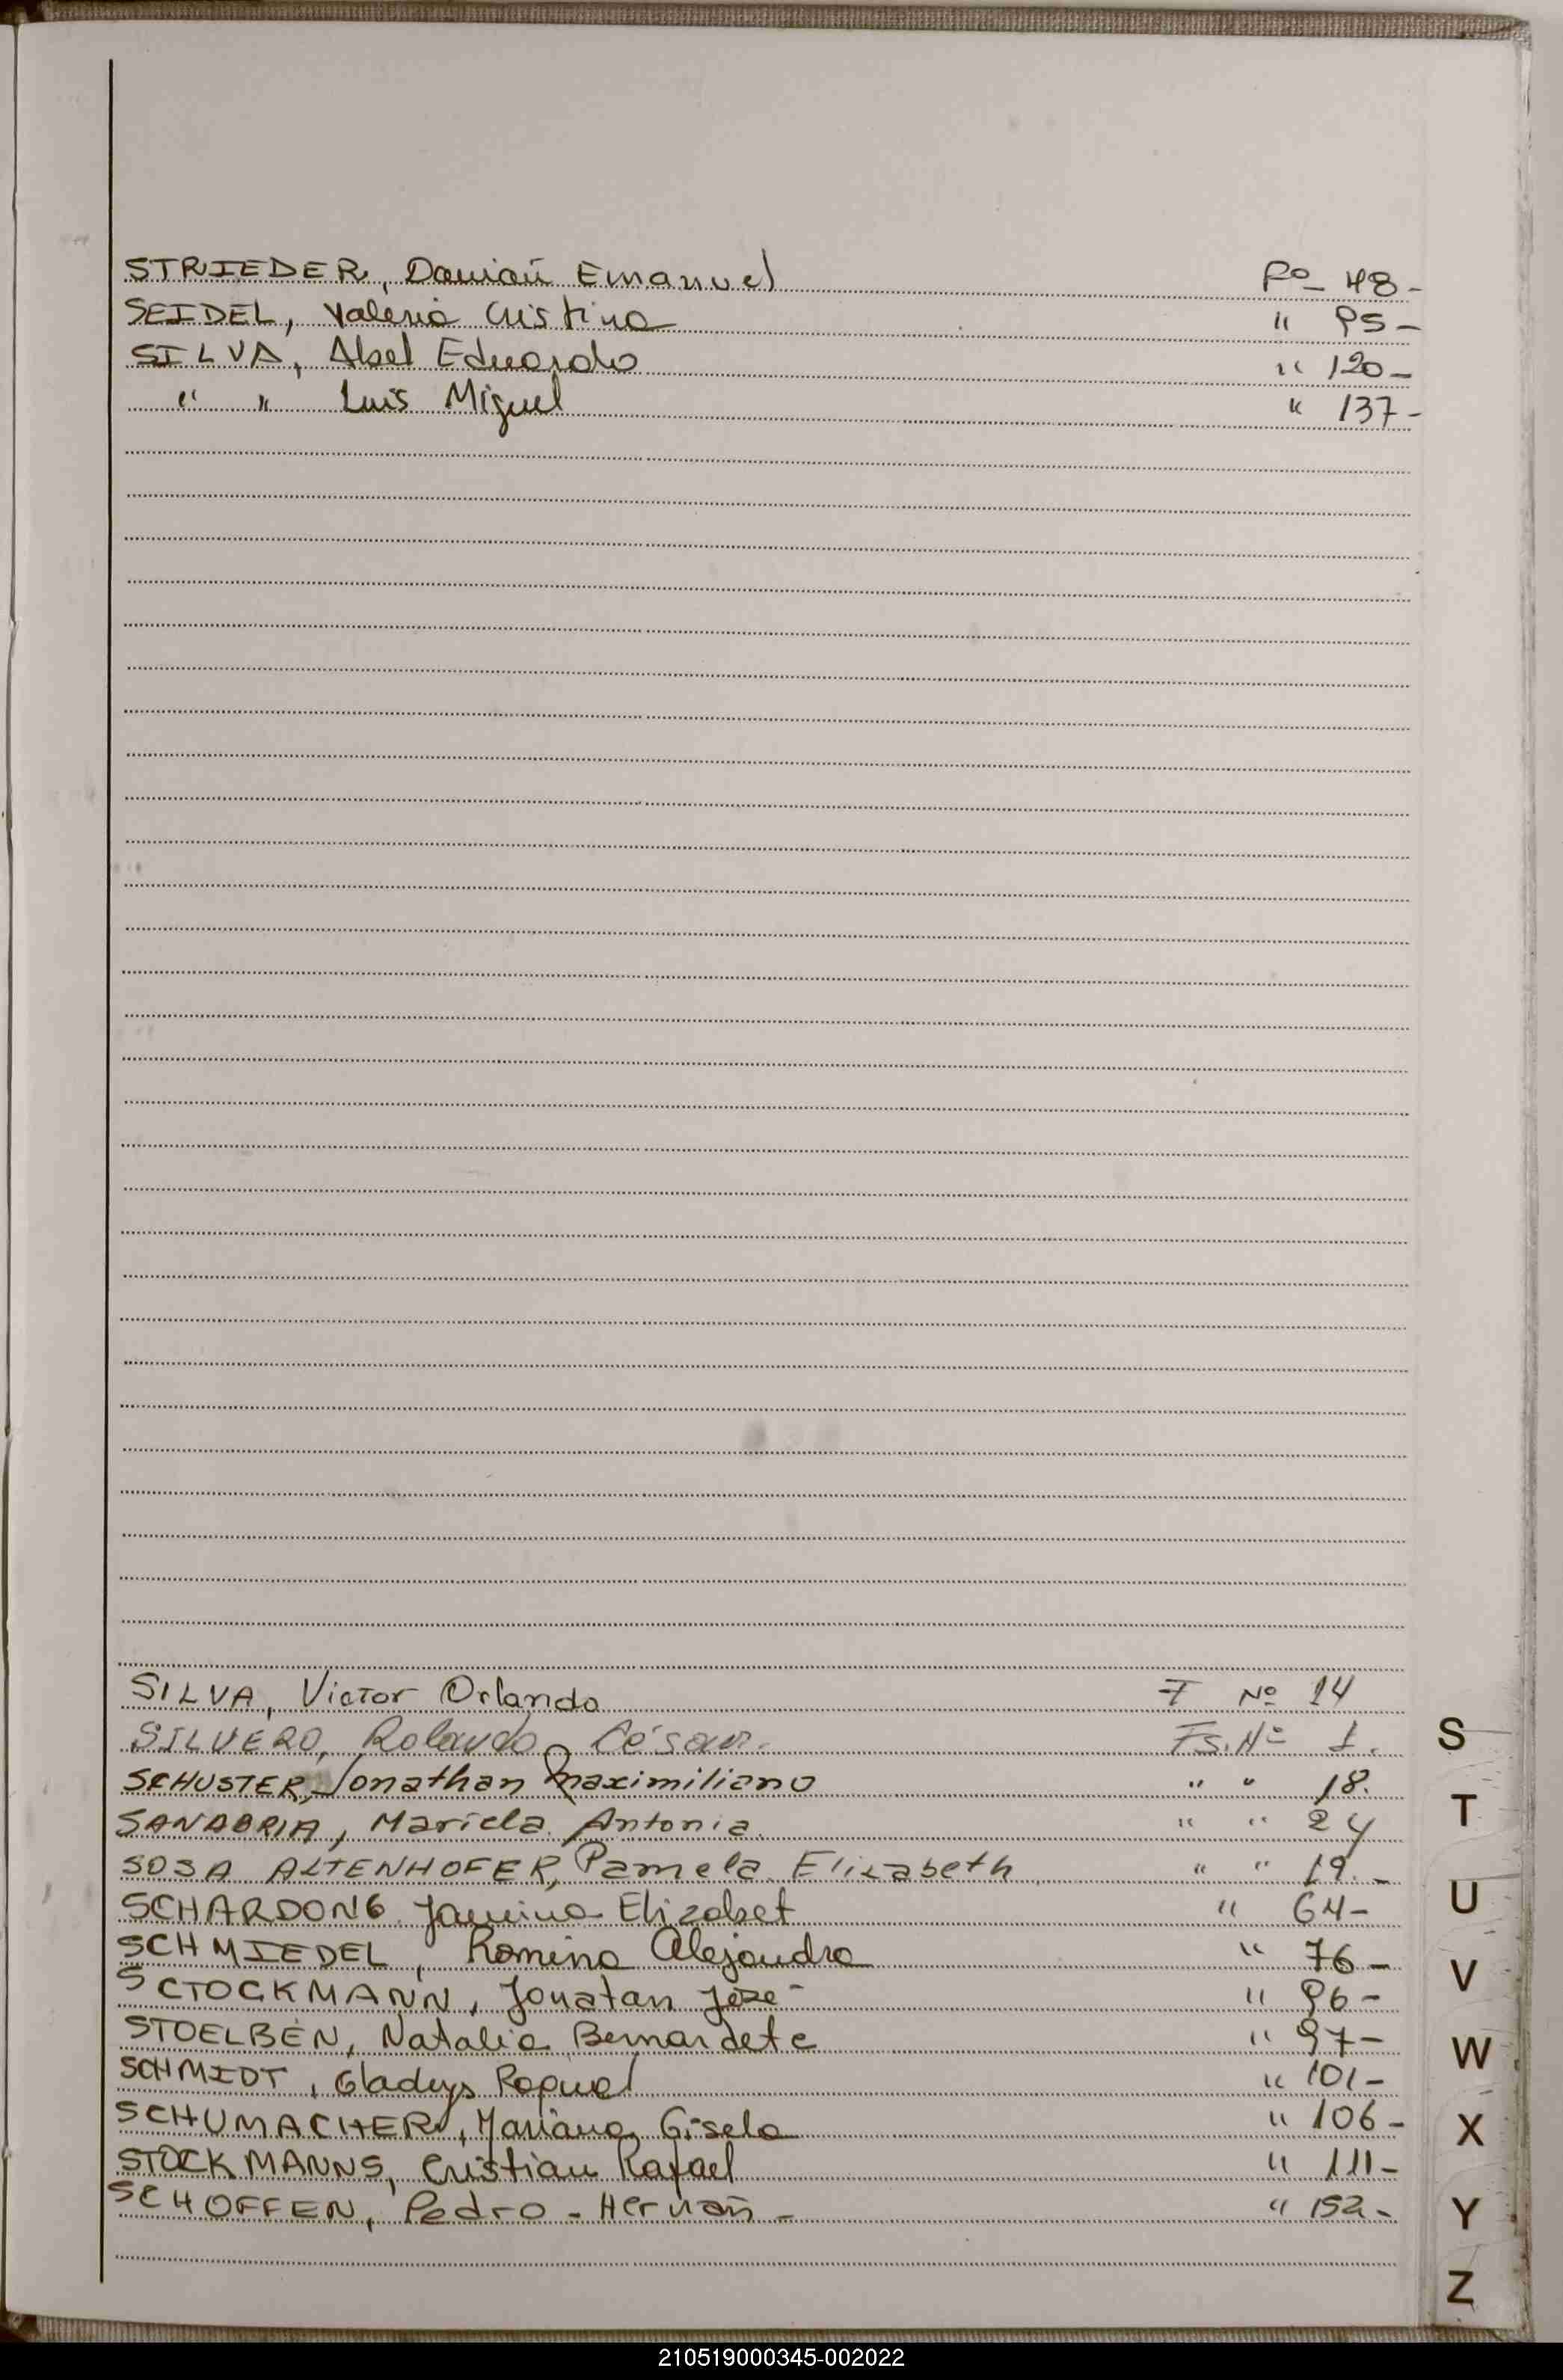 STRIEDER, Damián Emanuel Fº- 48-
SEIDEL, Valeria Cristina " 95-
SILVA, Abel Eduardo " 120-
" " Luis Miguel " 137-
SILVA, Victor Orlando F Nº 14
SILVERO, Rolando César. Fs. Nº 1.
SCHUSTER, Jonathan Maximiliano " " 18.
SANABRIA, Mariela Antonia. " " 24
SOSA ALTENHOFER, Pamela Elizabeth " " 19.-
SCHARDONG Janina Elizabet " 64-
SCHMIEDEL, Romina Alejandra " 76-
SCTOCKMANN, Jonatan José- " 96-
STOELBEN, Natalia Bernardete " 97-
SCHMIDT, Gladys Raquel " 101-
SCHUMACHER, Mariana Gisela " 106-
STOCKMANNS, Cristian Rafael " 111-
SCHOFFEN, Pedro - Hernán - " 152-
S
T
U
V
W
X
Y
Z
210519000345-002022